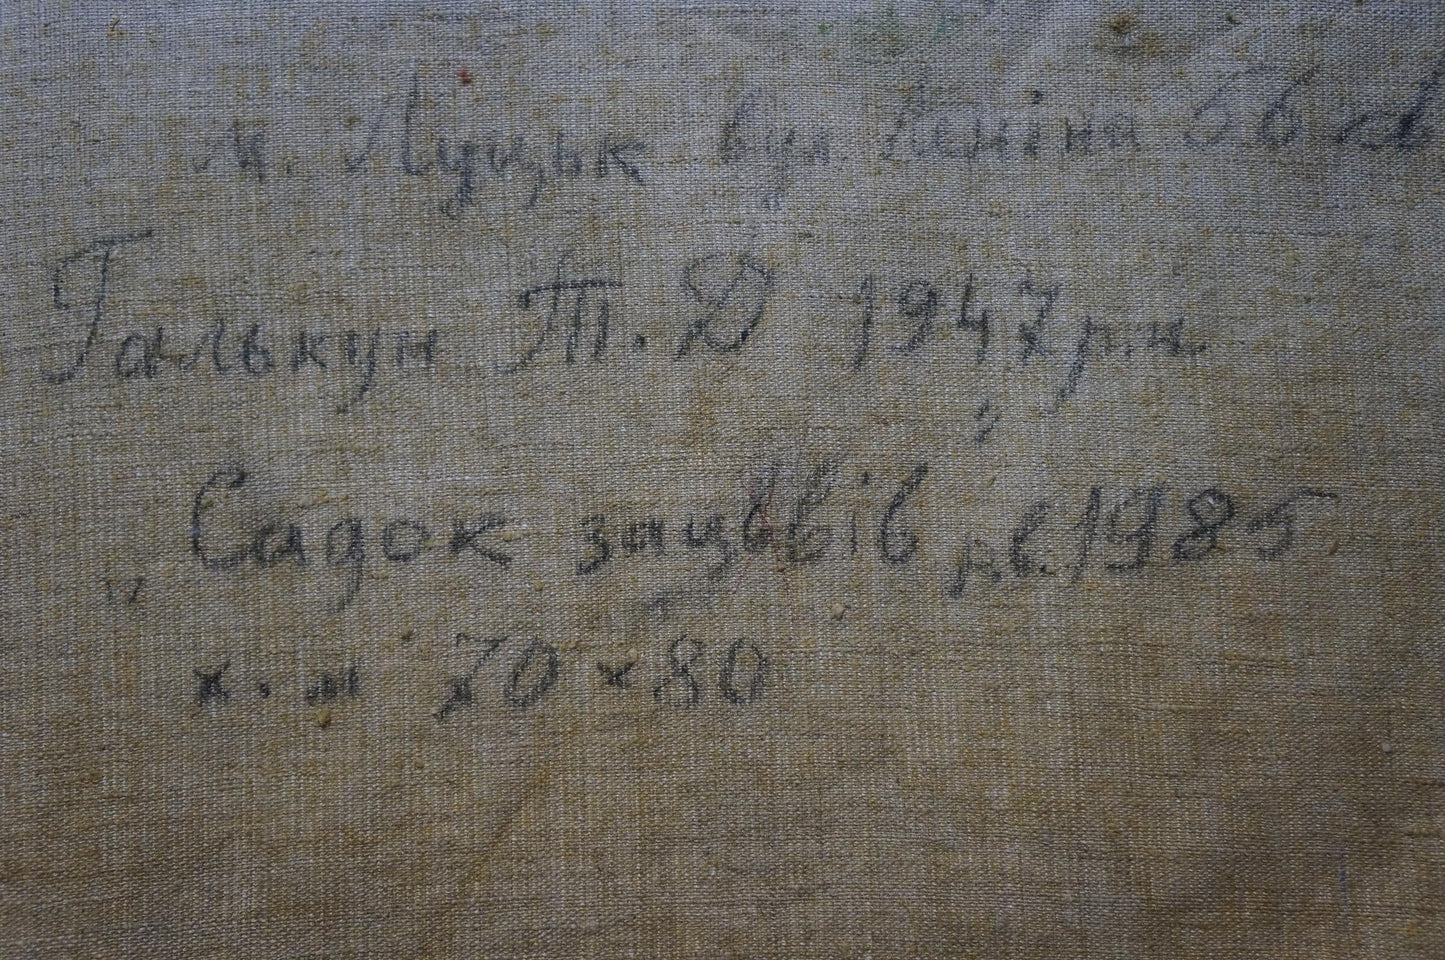 м. Луцьк вул. Леніна
Галькун Т. Д 1947 р.н
„Садок зацввів" р.в. 1985
х. м 70 × 80